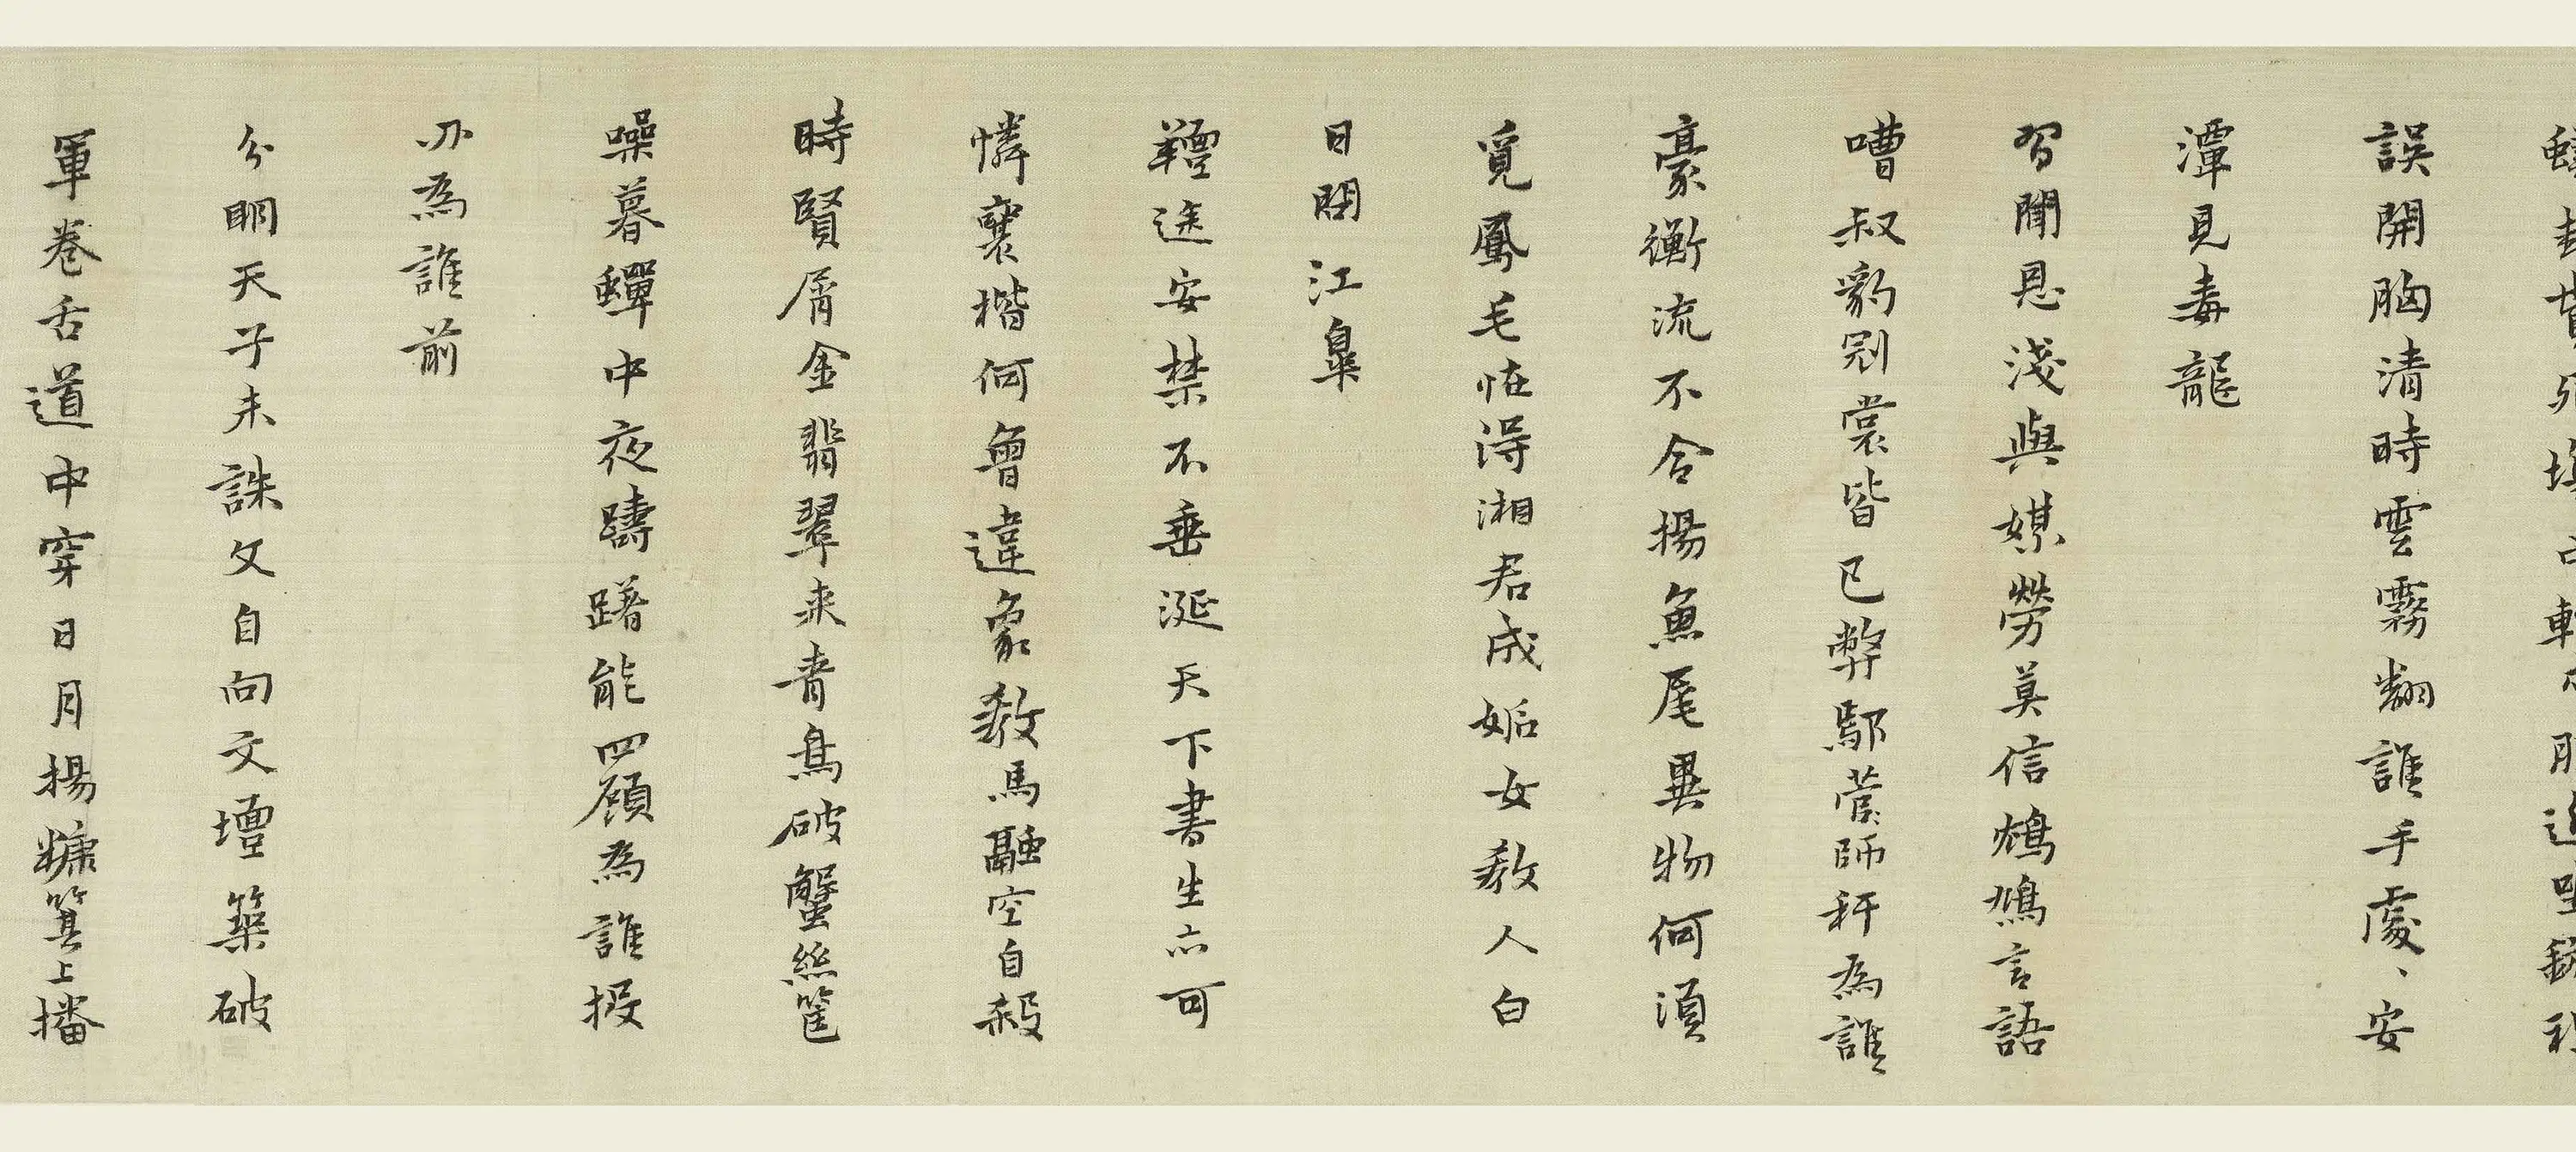 誤開胸清時雲霧翻誰手處、安
潭見毒龍
習聞恩淺與媒勞莫信鴆鳩言語
嘈叔豹剜裳皆已弊鄢蓲師秤為誰
豪衡流不合揚魚尾異物何須
覓鳳毛恠得湘君成姤女教人白
日閉江皐
羶途安禁不垂涎天下書生亦可
憐襄楷何曾違象教馬融空自殺
時賢屑金翡翠来青鳥破蟹絲筐
噪暮蟬中夜躊躇能四顧為誰投
刅為誰前
分明天子未誅文自向文壇築破
軍卷舌道中穿日月揚糠箕上播